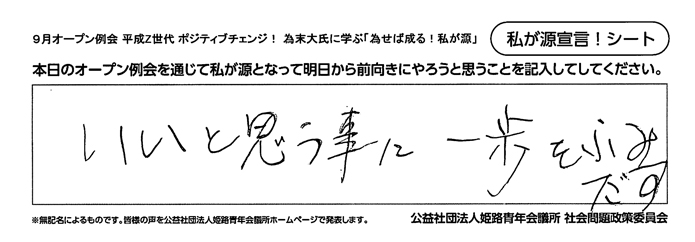 9月オープン例会 平成Z世代 ポジティブチェンジ! 為末大氏に学ぶ「為せば成る!私が源」
私が源宣言!シート
本日のオープン例会を通じて私が源となって明日から前向きにやろうと思うことを記入してしてください。
いいと思う事に 一歩をふみ
だす
※無記名によるものです。皆様の声を公益社団法人姫路青年会議所ホームページで発表します。
公益社団法人姫路青年会議所 社会問題政策委員会